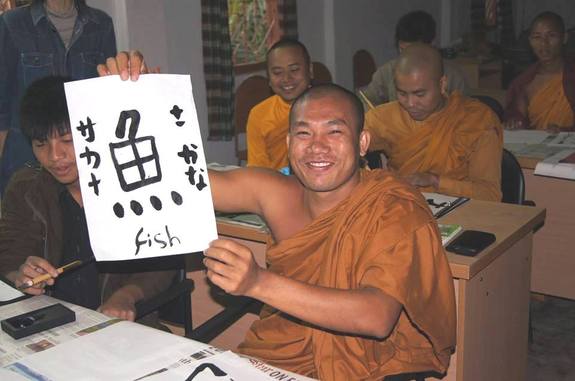 さかな
魚
サカナ
fish